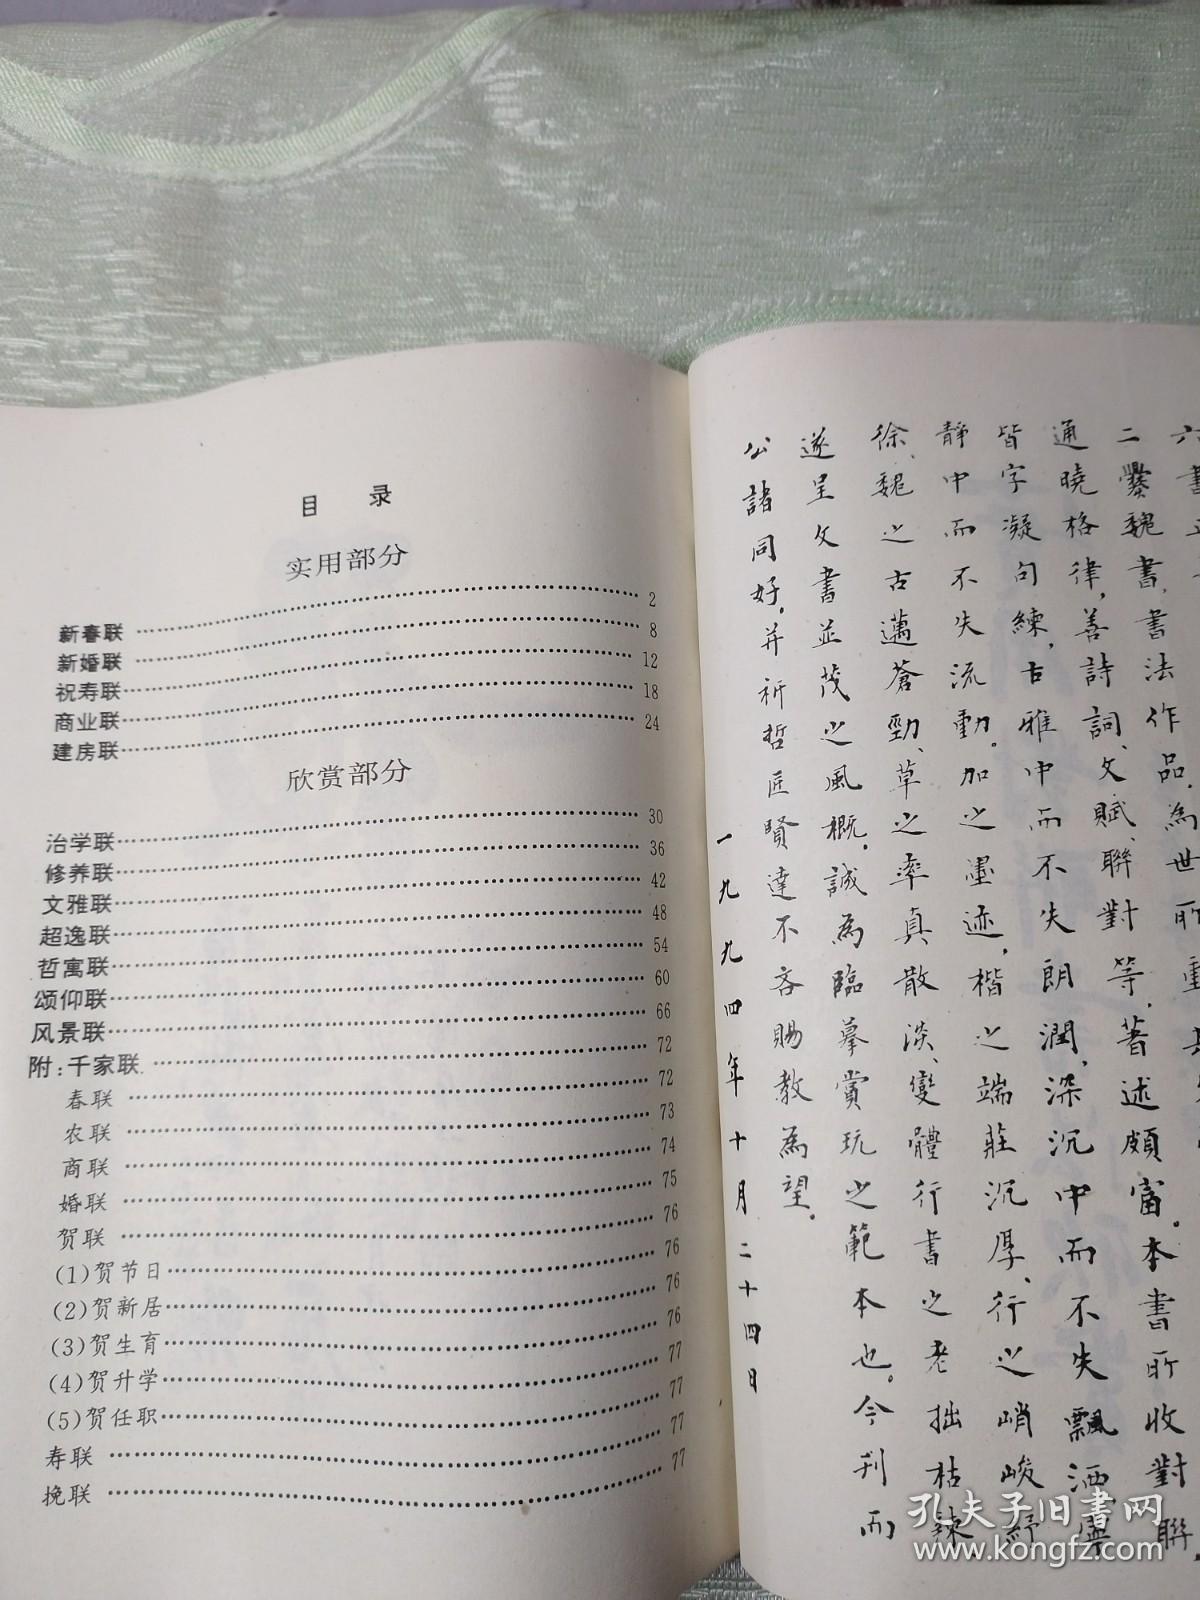 目 录
实用部分
新春联 2
新婚联 8
祝寿联 12
商业联 18
建房联 24
欣赏部分
治学联 30
修养联 36
文雅联 42
超逸联 48
哲寓联 54
颂仰联 60
风景联 66
附:千家联 72
春联 72
农联 73
商联 74
婚联 75
贺联 76
(1)贺节日 76
(2)贺新居 76
(3)贺生育 76
(4)贺升学 77
(5)贺任职 77
寿联 77
挽联 77
二爨魏書,書法作品,為世所重
通曉格律,善詩詞、文賦、聯對等,著述頗富。本書所收對聯,
皆字凝句練,古雅中而不失朗潤,深沉中而不失飄洒,寧
靜中而不失流動。加之墨迹,楷之端莊沉厚、行之峭峻紓
徐、魏之古邁蒼勁、草之率真散淡、變體行書之老拙枯辣,
遂呈文書並茂之風概。誠為臨摹賞玩之範本也。今刊而
公諸同好,并祈哲匠賢達不吝賜教為望。
一九九四年十月二十四日
孔夫子旧书网
www.kongfz.com